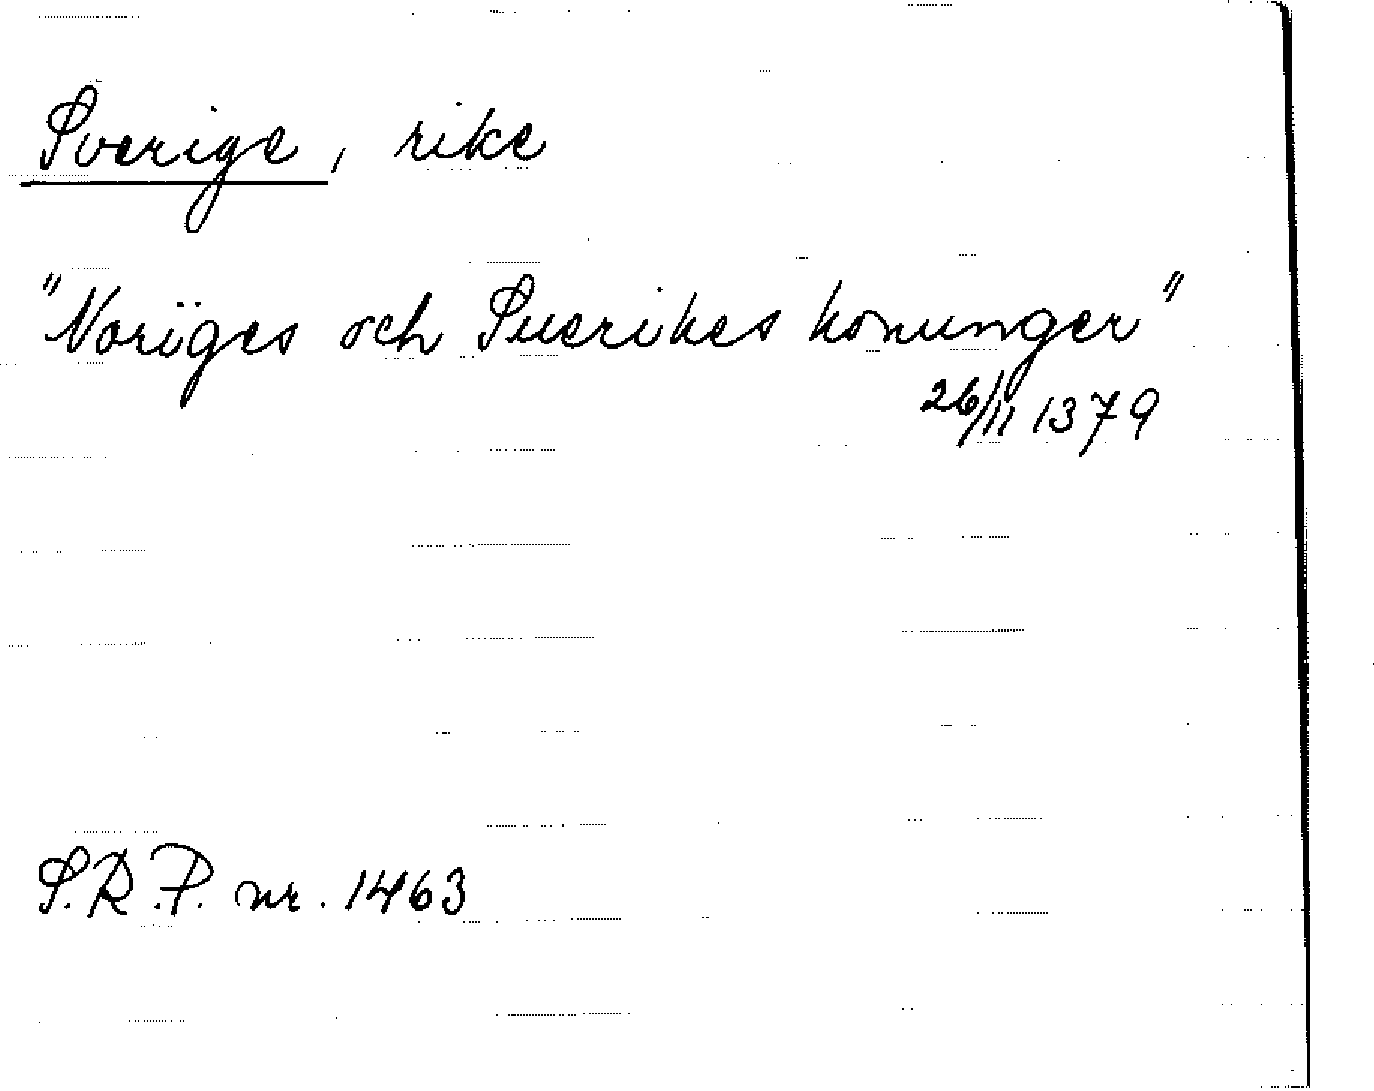 Sverige, rike
"Noriges och Suerikes konunger"
26/11 1379
S.R.P. nr. 1463